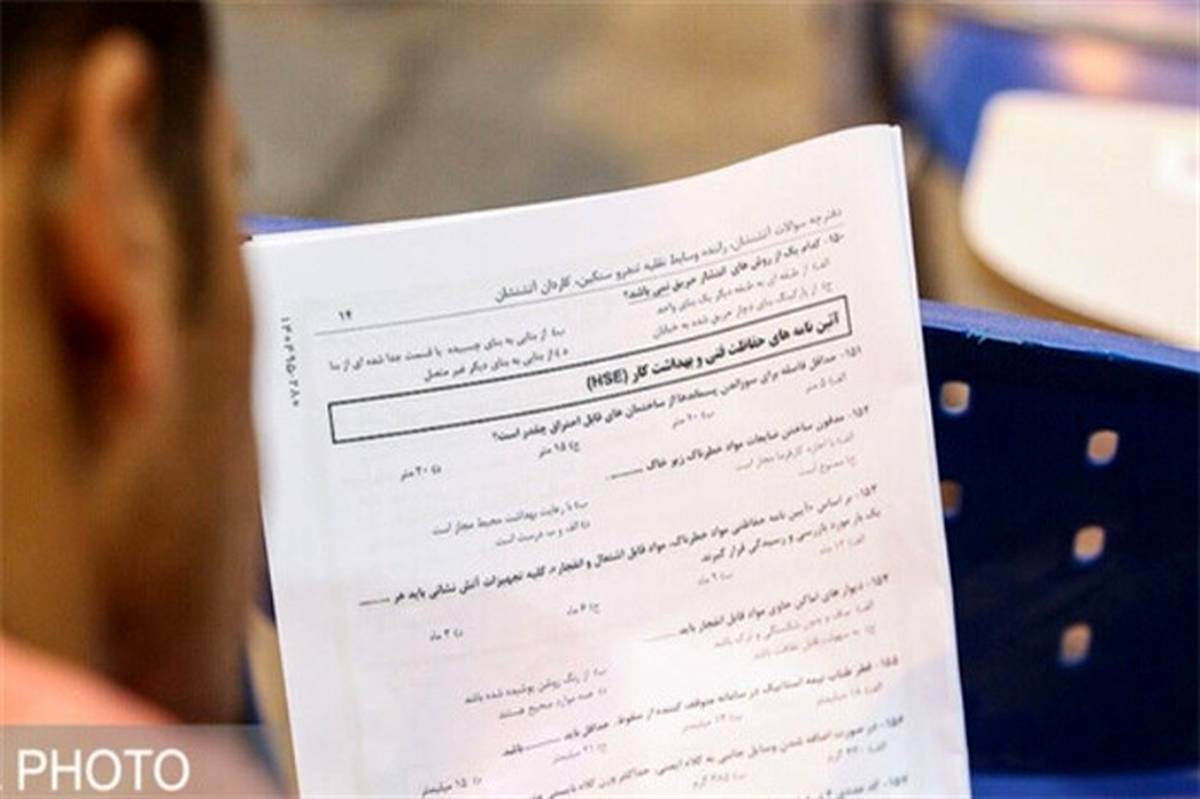 دفترچه سوالات آتشنشان، راننده وسایط نقلیه تندرو سنگین، کاردان آتشنشان
۱۴
۱۵۰- کدام یک از روش های انتشار حریق نمی باشد؟
الف) از طبقه ای به طبقه دیگر یک بنای واحد
ب) از بنایی به بنای چسبیده یا قسمت جدا شده ای از بنا
ج) از پارکینگ بنای دچار حریق شده به خیابان
د) از بنایی به بنای دیگر غیر متصل
آئین نامه های حفاظت فنی و بهداشت کار (HSE)
۱۵۱- حداقل فاصله برای سوزاندن پسماندها از ساختمان های قابل احتراق چقدر است؟
الف) ۵ متر ب) ۲۰ متر ج) ۱۵ متر د) ۳۰ متر
۱۵۲- مدفون ساختن ضایعات مواد خطرناک زیر خاک ........ .
الف) با اجازه کارفرما مجاز است
ب) با رعایت بهداشت محیط مجاز است
ج) ممنوع است
د) الف و ب درست است
۱۵۳- بر اساس «آیین نامه حفاظتی مواد خطرناک، مواد قابل اشتعال و انفجار»، کلیه تجهیزات آتش نشانی باید هر ........
یک بار مورد بازرسی و رسیدگی قرار گیرند.
الف) ۱۲ ماه ب) ۹ ماه ج) ۶ ماه د) ۳ ماه
۱۵۴- دیوار های اماکن حاوی مواد قابل انفجار باید ........
الف) صاف و بدون شکستگی و ترک باشد
ب) از رنگ روشن پوشیده شده باشد
ج) به سهولت قابل نظافت باشد
د) همه موارد صحیح هستند
۱۵۵- قطر طناب نیمه استاتیک در سامانه متوقف کننده از سقوط، حداقل باید ........ باشد.
الف) ۱۸ میلیمتر ب) ۱۳ میلیمتر ج) ۲۱ میلیمتر د) ۱۵ میلیمتر
۱۵۶- در صورت اضافه شدن وسایل جانبی به کلاه ایمنی، حداکثر وزن کلاه
الف) ۴۴۰ گرم ب) ۳۸۵ گرم
۱۵۷-
PHOTO